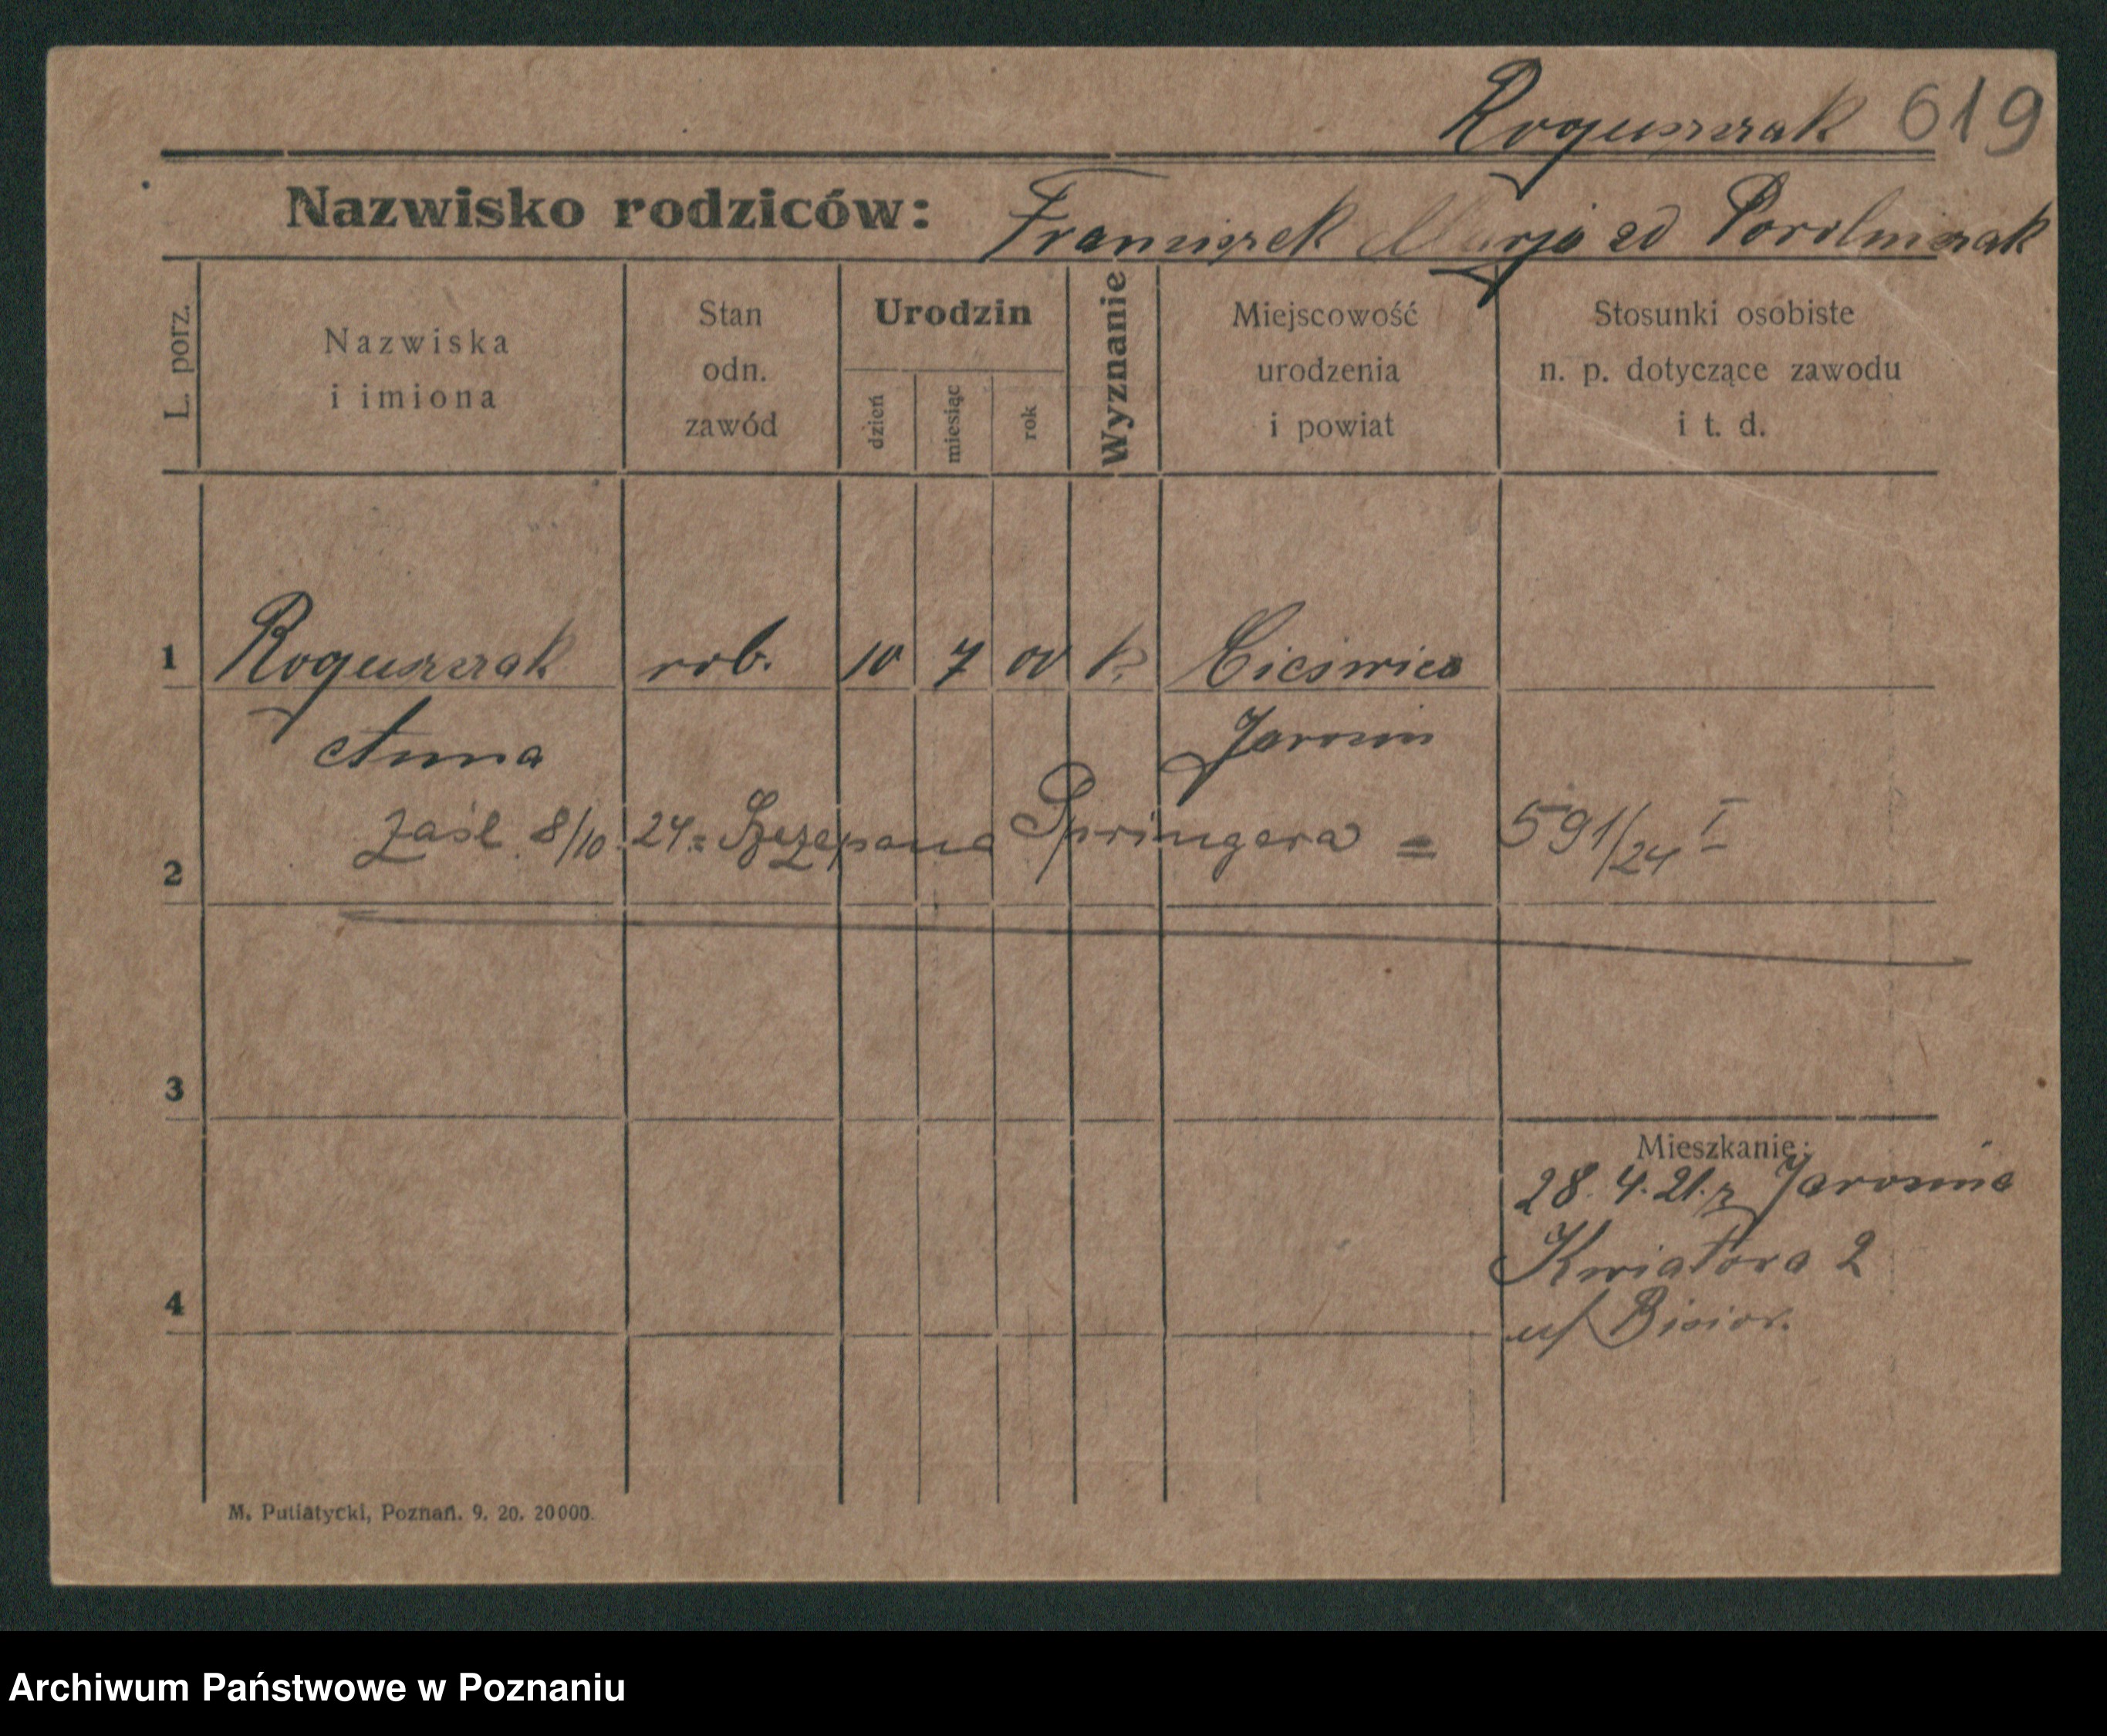 Roguszczak 619
Nazwisko rodziców: Franciszek Marja zd
L. porz.
Nazwiska
i imiona
Stan
odn.
zawód
Urodzin
dzień
miesiąc
rok
Wyznanie
Miejscowość
urodzenia
i powiat
Stosunki osobiste
n. p. dotyczące zawodu
i t. d.
1 Roguszczak rob. 10 7 00 k.
Anna Jarocin
2 zaśl. 8/10.24 = Szczepana Springera = 591/24 I
3
Mieszkanie:
28.4.21. z Jarocina
Kwiatowa 2
4 u/
M. Putiatycki, Poznań. 9. 20. 20000.
Archiwum Państwowe w Poznaniu